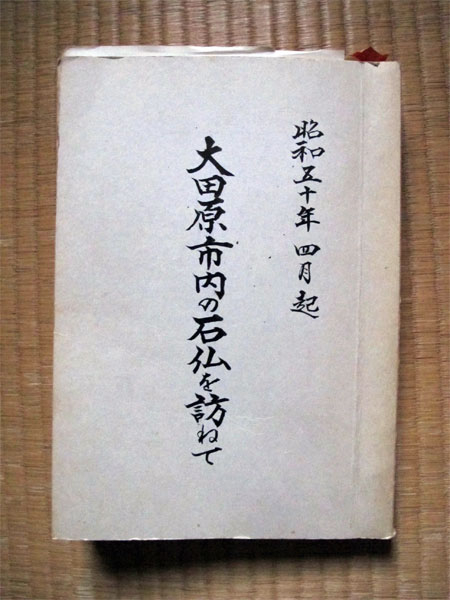 昭和五十年 四月起
大田原市内の石仏を訪ねて